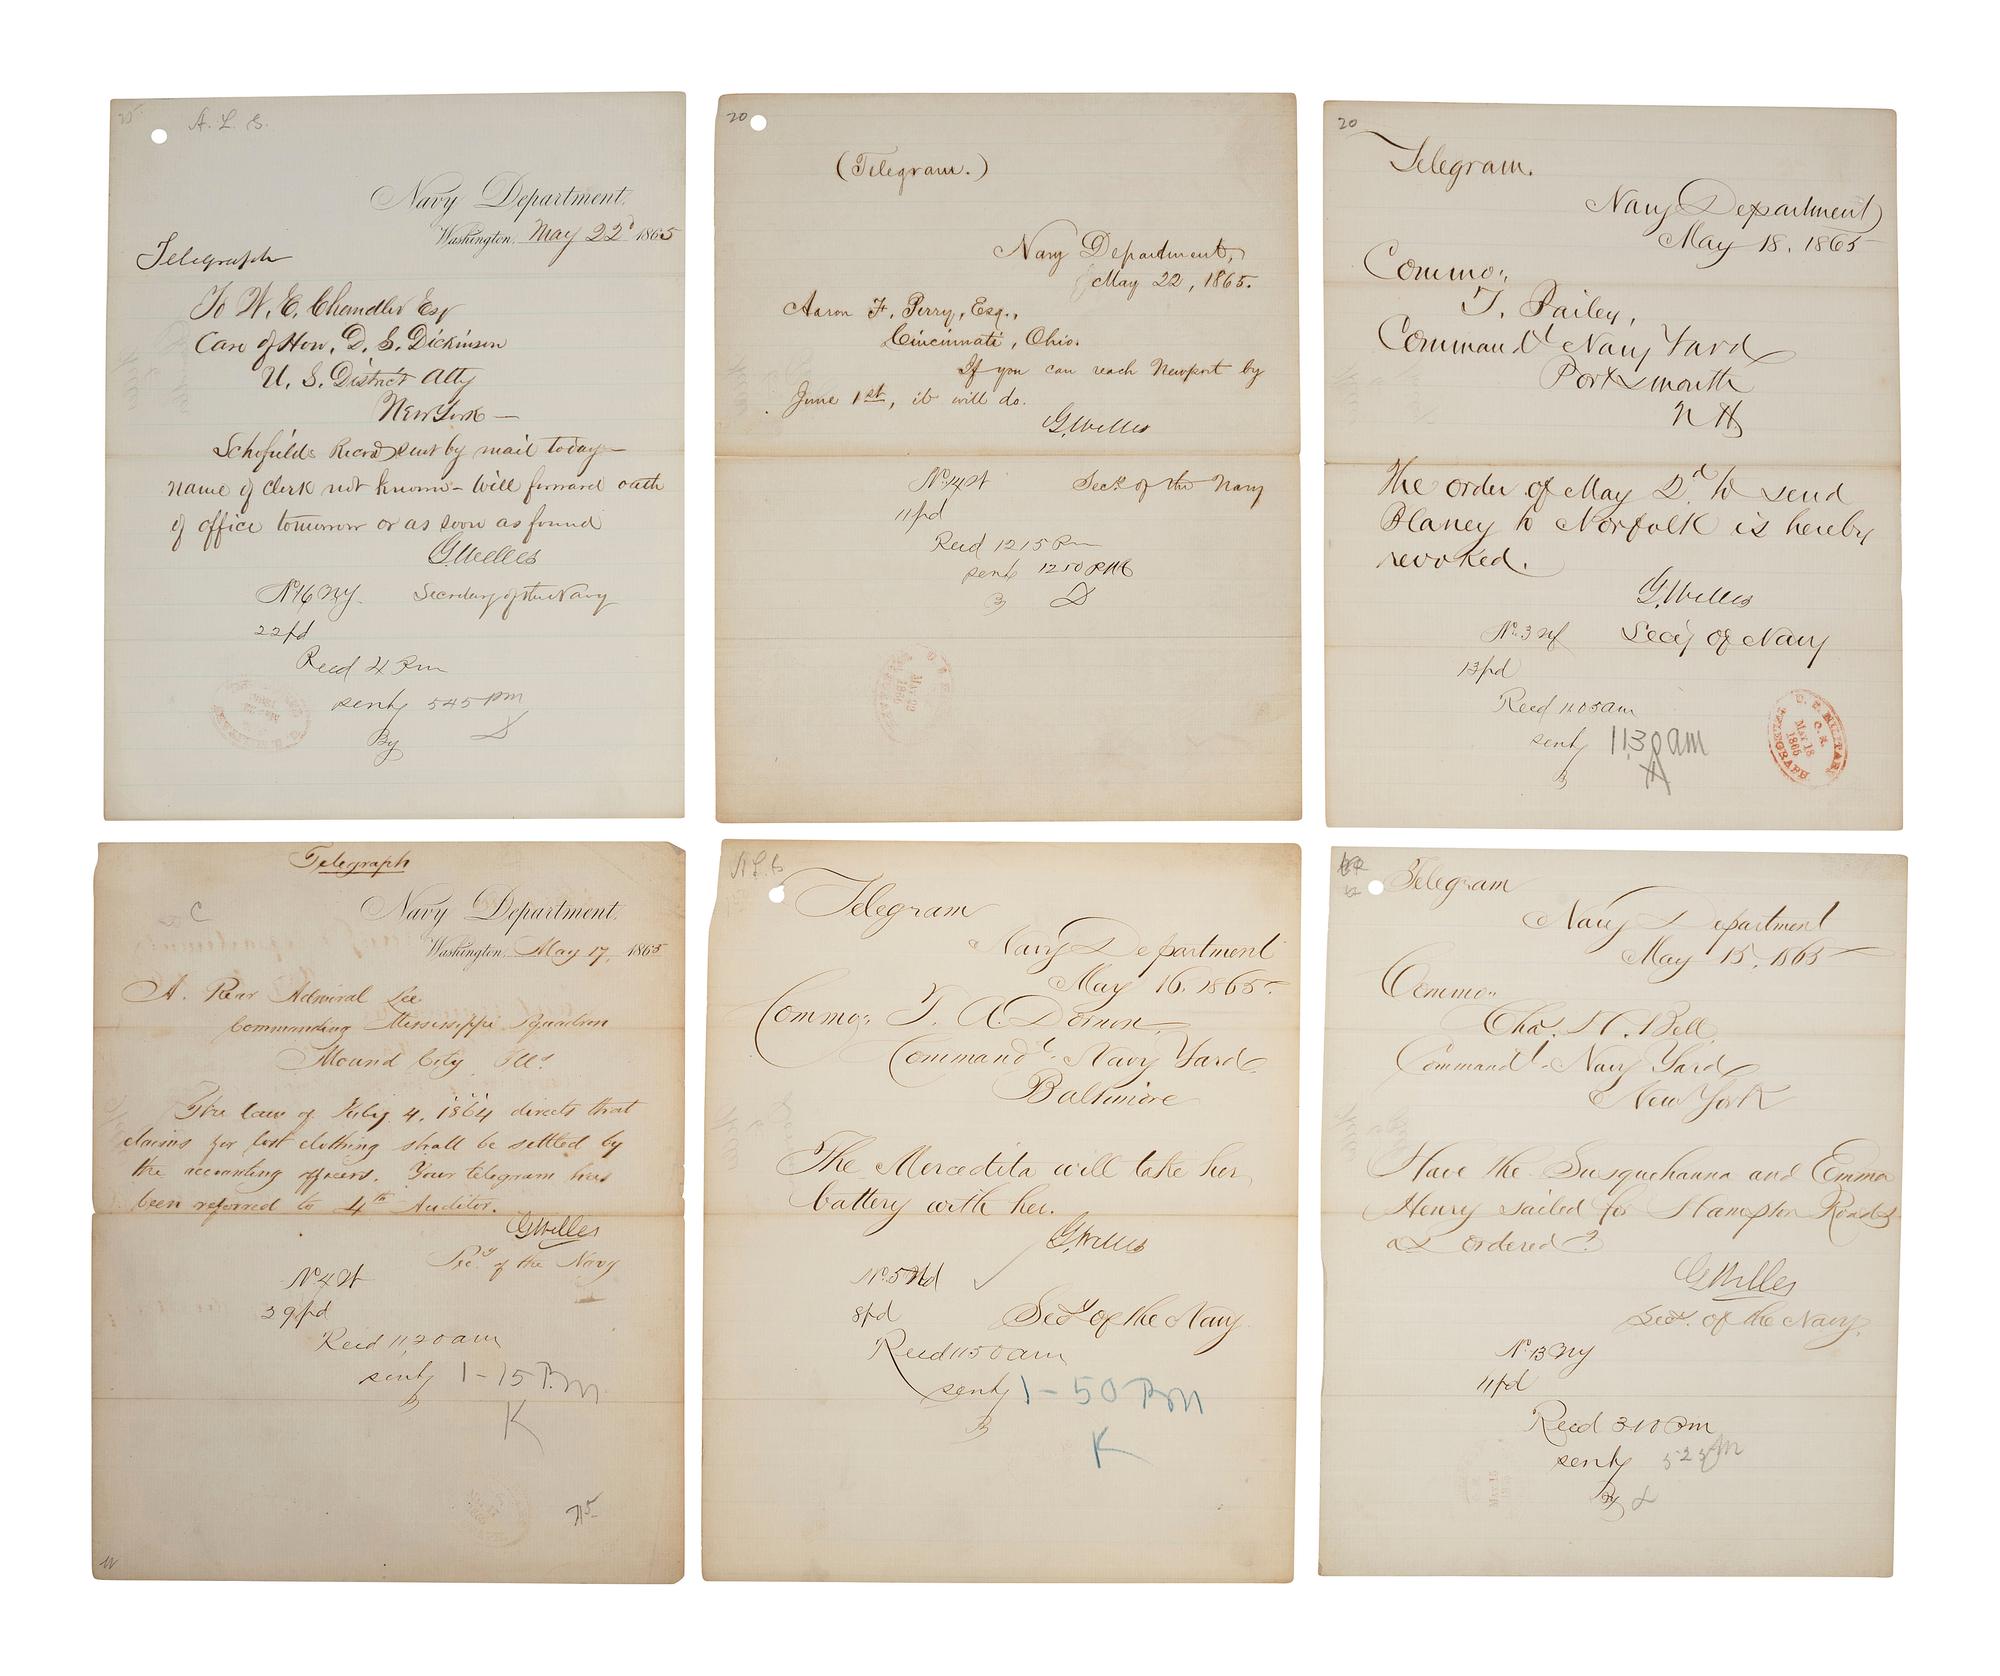 A. L. S.
Navy Department,
Washington, May 22d 1865
Telegraph
To W. E. Chandler Esq
Care of Hon. D. S. Dickinson
U. S. District Atty
New York —
Schofields Record sent by mail today —
name of clerk not known — Will forward oath
of office tomorrow or as soon as found
G Welles
No 16 NY. Secretary of the Navy
22 pd
Recd 4 Pm
sent 545 pm
By
20
(Telegram.)
Navy Department,
May 22, 1865.
Aaron F. Perry, Esq.,
Cincinnati, Ohio.
If you can reach Newport by
June 1st, it will do.
G. Welles
Secy. of the Navy
11 pd
Recd 1215 Pm
sent 1250 PM
B D
20
Telegram.
Navy Department
May 18, 1865
Commo:
T. Bailey,
Commandt Navy Yard
Portsmouth
N H
The order of May 2d to send
Blaney to Norfolk is hereby
revoked.
G. Welles
No. 3 Secy of Navy
13 pd
Recd 1105 am
sent 1130 am
B
U. S. MILITARY
TELEGRAPH.
May 18
1865
Telegraph
C
Navy Department,
Washington, May 17, 1865
A. Rear Admiral Lee
Commanding Mississippi Squadron
Mound City, Ills.
The law of July 4, 1864 directs that
claims for lost clothing shall be settled by
the accounting officers. Your telegram has
been referred to 4th Auditor.
G Welles
Secy of the Navy
39 pd
Recd 11,20 am
sent 1-15 P.m
B
K
A L S
Telegram
Navy Department
May 16, 1865.
Commo: T. A. Dornin
Commandt. Navy Yard
Baltimore
The Mercedita will take her
battery with her.
G. Welles
No. 5
8 pd Secy of the Navy
Recd 1150 am
sent 1-50 Pm
B
K
Telegram
Navy Department
May 15, 1865
Commo:
Chas. H. Bell
Commandt. Navy Yard
New York
Have the Susquehanna and Emma
Henry sailed for Hampton Roads
as ordered?
G Welles
Secy. of the Navy.
No 13 NY
11 pd
Recd 310 Pm
sent 525 Pm
By